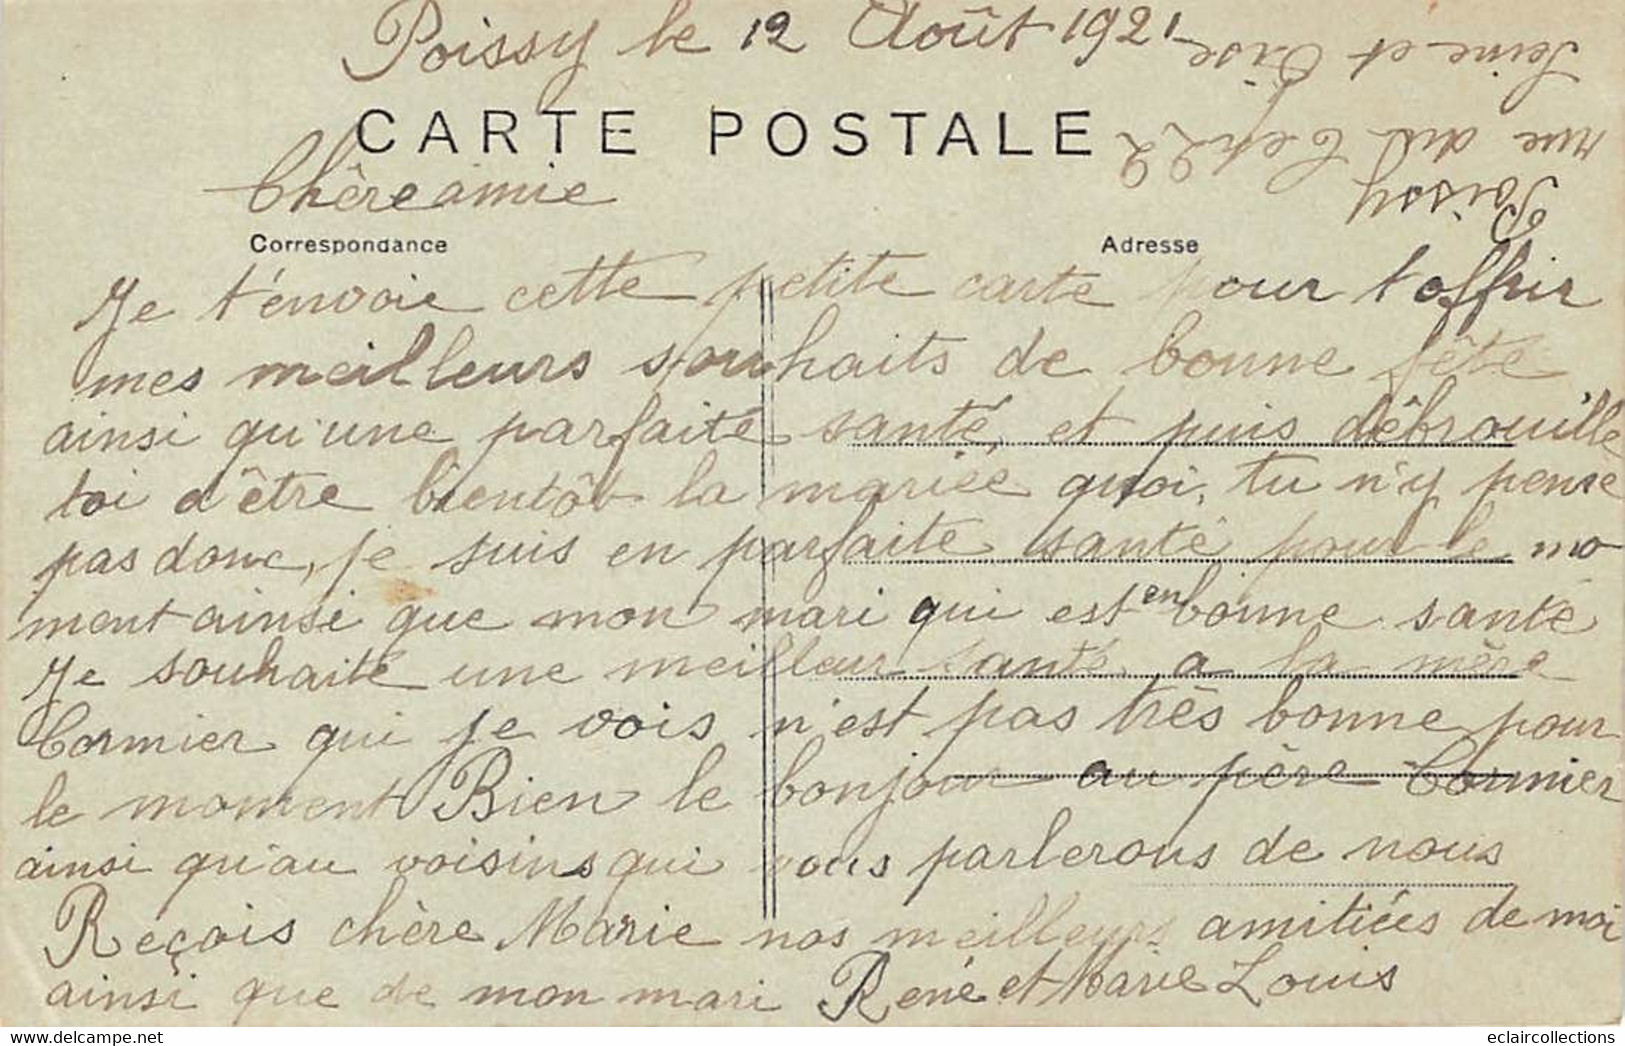 Poissy le 12 Août 1921
CARTE POSTALE
Chère amie
Correspondance
Adresse
Je t'envoie cette petite carte pour t'offrir
mes meilleurs souhaits de bonne fête
ainsi qu'une parfaite santé, et puis débrouille
toi d'être bientôt la mariée quoi, tu n'y pense
pas donc, je suis en parfaite santé pour le mo
ment ainsi que mon mari qui est en bonne santé
Je souhaite une meilleur santé a la mère
Cormier qui je vois n'est pas très bonne pour
le moment Bien le bonjour au père Cormier
ainsi qu'au voisins qui vous parlerons de nous
Reçois chère Marie nos meilleurs amitiées de moi
ainsi que de mon mari René et Marie Louis
Poissy
rue du 22
Seine et Oise
eclaircollections